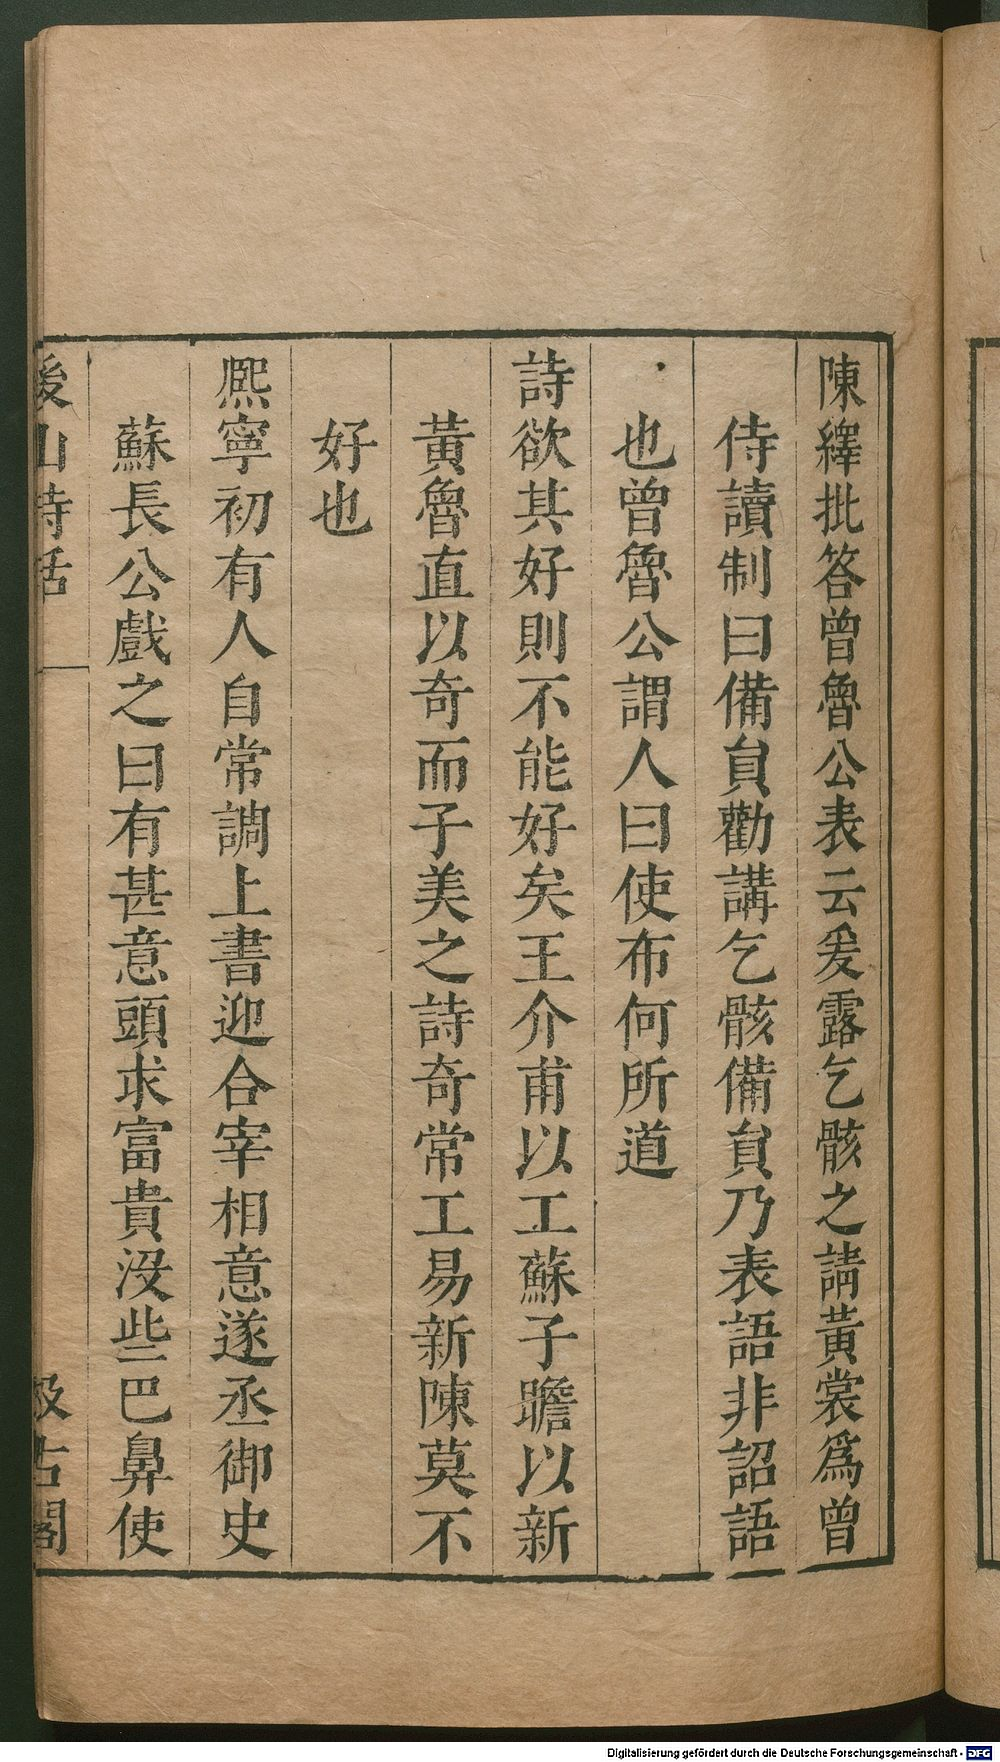 陳繹批答曾魯公表云爰露乞骸之請黃裳爲曾
侍讀制曰備貟勸講乞骸備貟乃表語非詔語
也曾魯公謂人曰使布何所道
詩欲其好則不能好矣王介甫以工蘇子瞻以新
黃魯直以奇而子美之詩奇常工易新陳莫不
好也
熈寧初有人自常調上書迎合宰相意遂丞御史
蘇長公戲之曰有甚意頭求富貴沒些巴鼻使
後山詩話
汲古閣
Digitalisierung gefördert durch die Deutsche Forschungsgemeinschaft - DFG